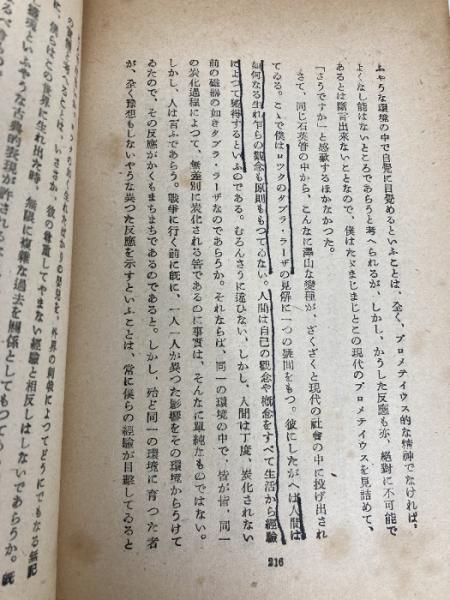 ふやうな環境の中で自覺に目覺めるといふことは、全く、プロメテイウス的な精神でなければ、
よくなし能はないところであらうと考へられるが、しかし、かうした反應も亦、絕對に不可能で
あるとは斷言出來ないことなので、僕はたゞまじまじとこの現代のプロメテイウスを見詰めて、
「さうですか」と感歎するほかなかつた。
さて、同じ石英管の中から、こんなに澤山な變種が、ざくざくと現代の社會の中に投げ出され
てゐる。こゝで僕はロツクのタブラ・ラーザの見解に一つの疑問をもつ。彼にしたがへば人間は
如何なる生れ乍らの觀念も原則ももつてゐない。人間は自己の觀念や概念をすべて生活から經驗
によつて獲得するといふのである。むろんさうに違ひない、しかし、人間は丁度、炭化されない
前の磁器の如きタブラ・ラーザなのであらうか。それならば、同一の環境の中で、皆が皆、同一
の炭化過程によつて、無差別に炭化される筈であるのに事實は、そんなに單純なものではない。
しかし、人は言ふであらう。戰爭に行く前に既に、一人一人が異つた影響をその環境からうけて
ゐたので、その反應がかくもまちまちであるのであると。しかし、殆ど同一の環境に育つた者
が、全く豫想もしないやうな異つた反應を示すといふことは、常に僕らの經驗が目擊してゐると
外界の刺戟によつてどうにでもなる無記
いさゝか、彼の尊重してやまない經驗と相反しはしないであらうか。旣
に、僕らはこの世界に生れ出た時、無限に複雜な過去を關係としてもつてゐ
といふやうな古典的表現が許されるな
216